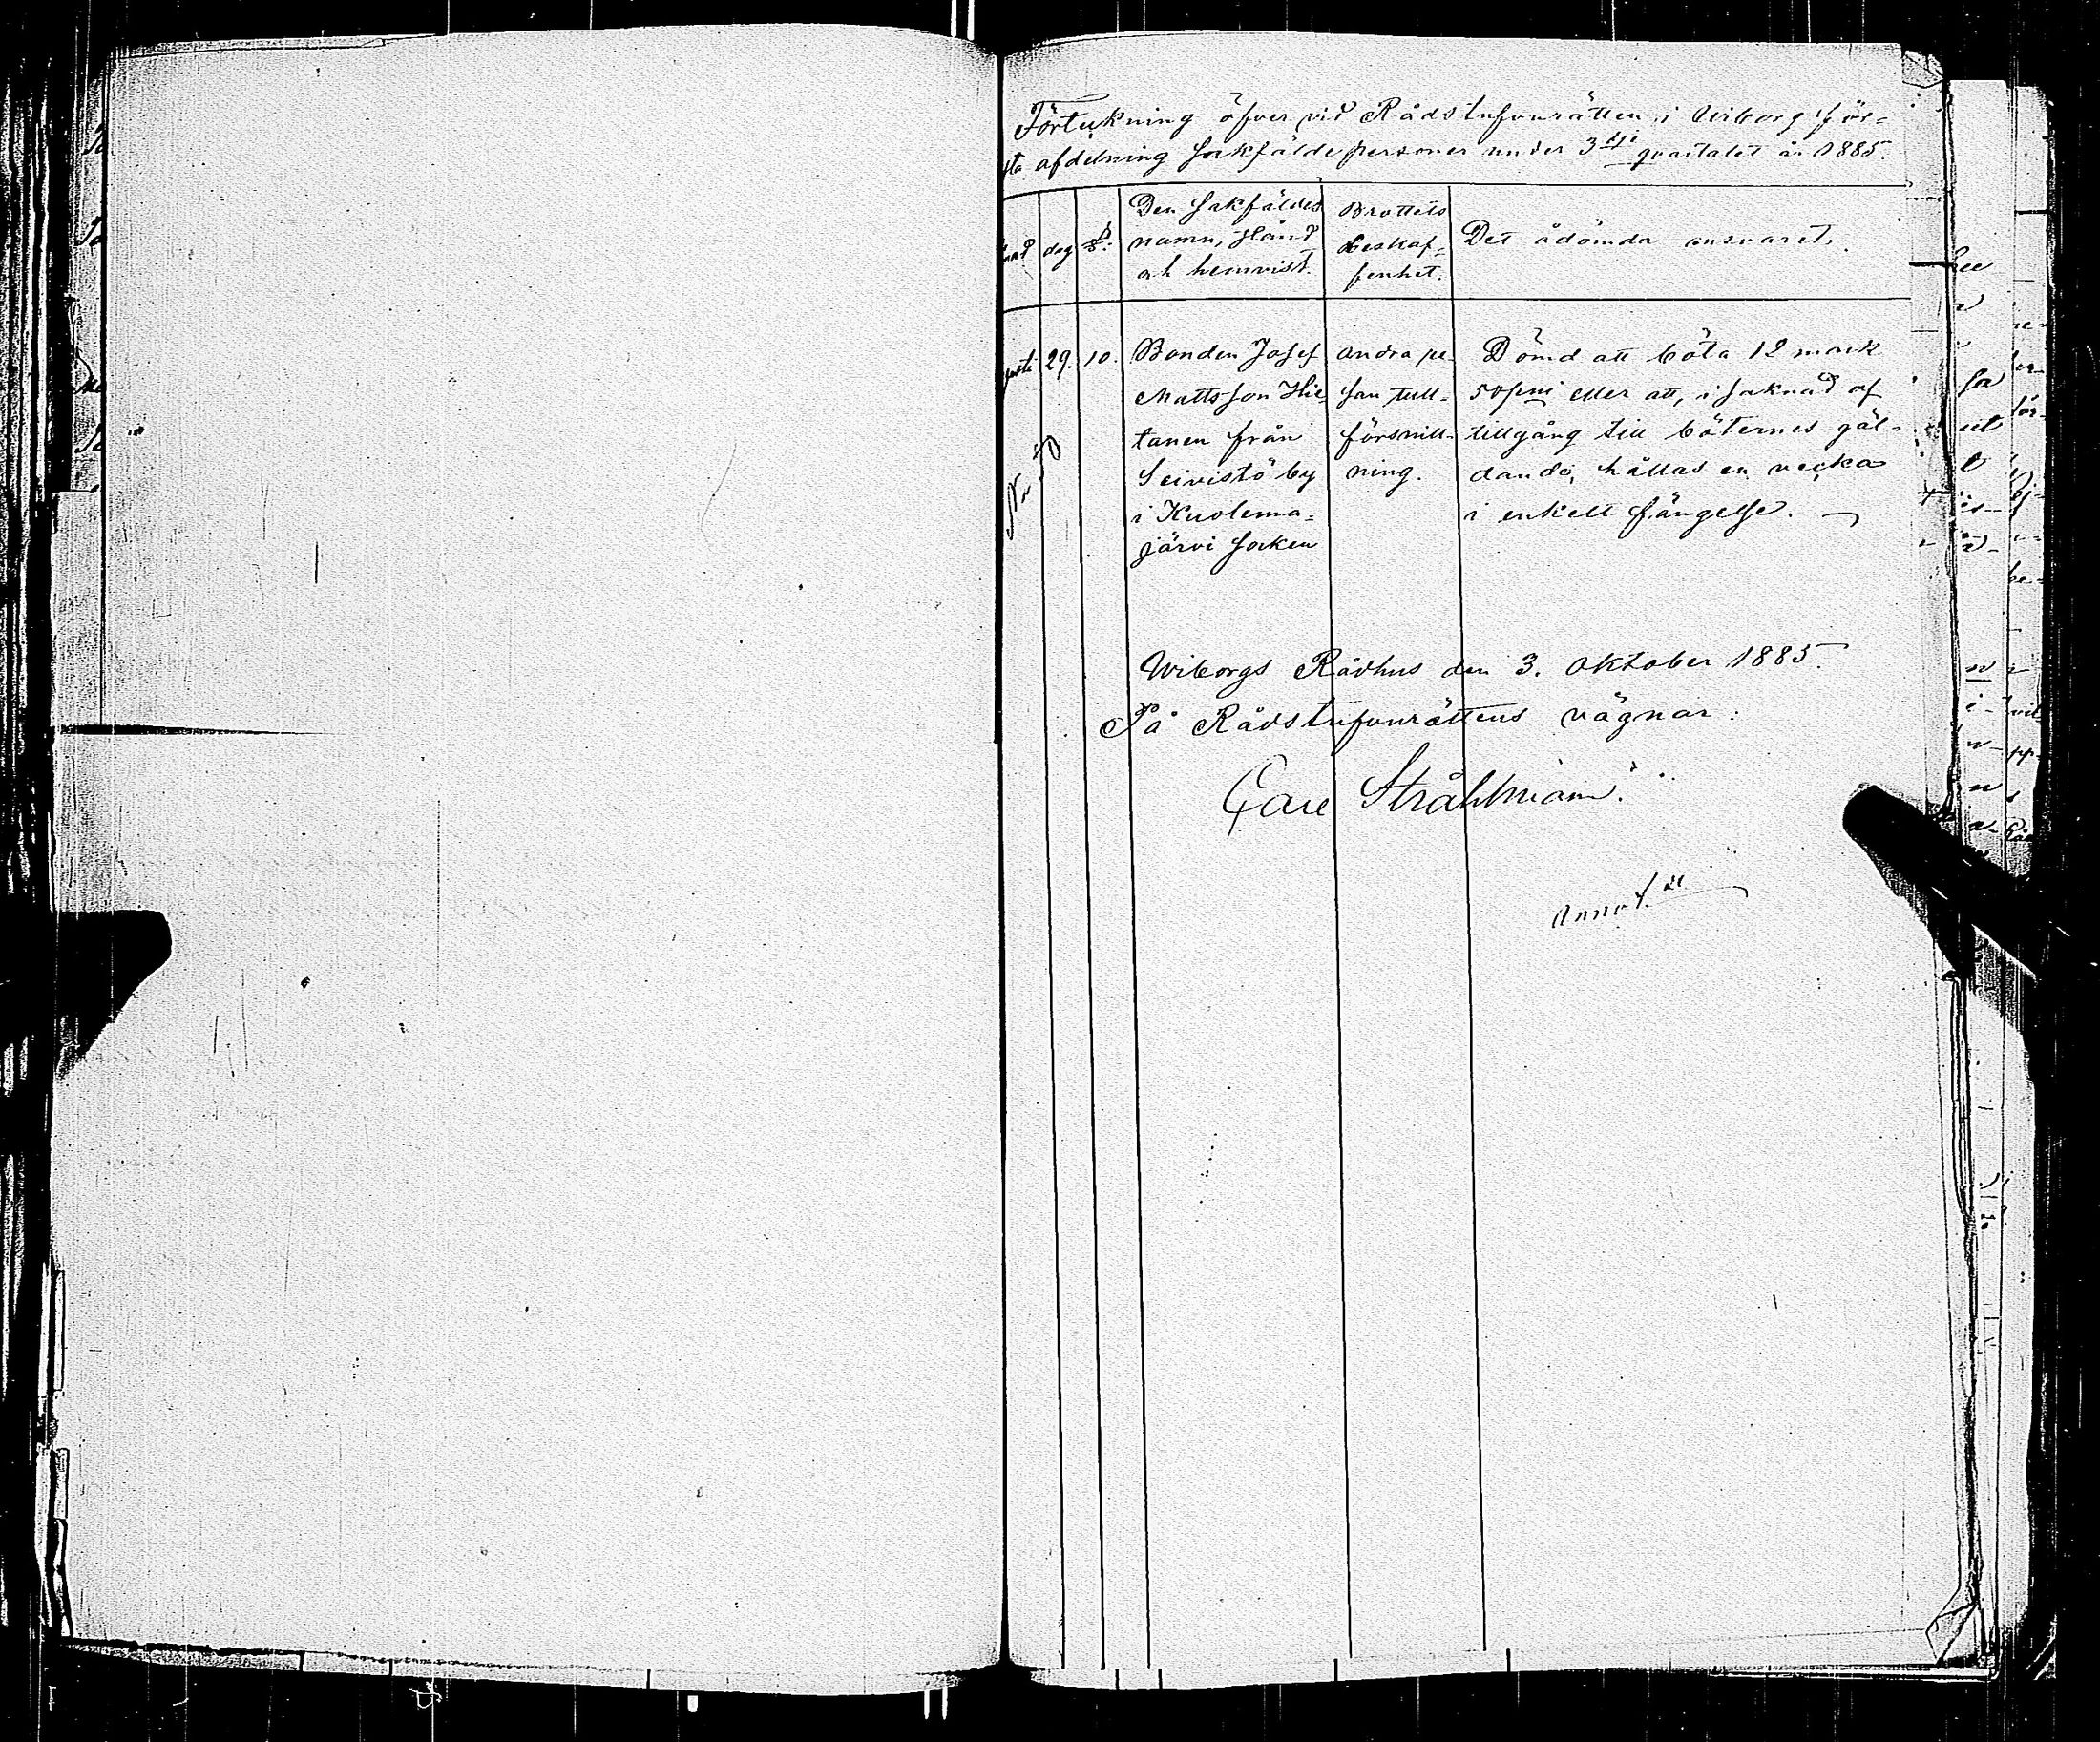 Förtekning öfver vid Rådstufvurätten i Wiborg för-
sta afdelning sakfälde personer under 3dje qvartalet år 1885.
dag
§.
Den sakfäldes
namn, stånd
och hemvist.
Brottets
beskaf-
fenhet.
Det ådömda ansvaret.
29.
10.
Bonden Josef
Mattsson Hie-
tanen från
Seivistö by
i Kuolema-
järvi socken
andra re-
san tull-
försnill-
ning.
Dömd att böta 12 mark
50 pni eller att, i saknad af
tillgång till böternes gäl-
dande, hållas en vecka
i enkelt fängelse.
No 50
Wiborgs Rådhus den 3. Oktober 1885.
På Rådstufvurättens vägnar:
Carl Ståhlman.
Annot.